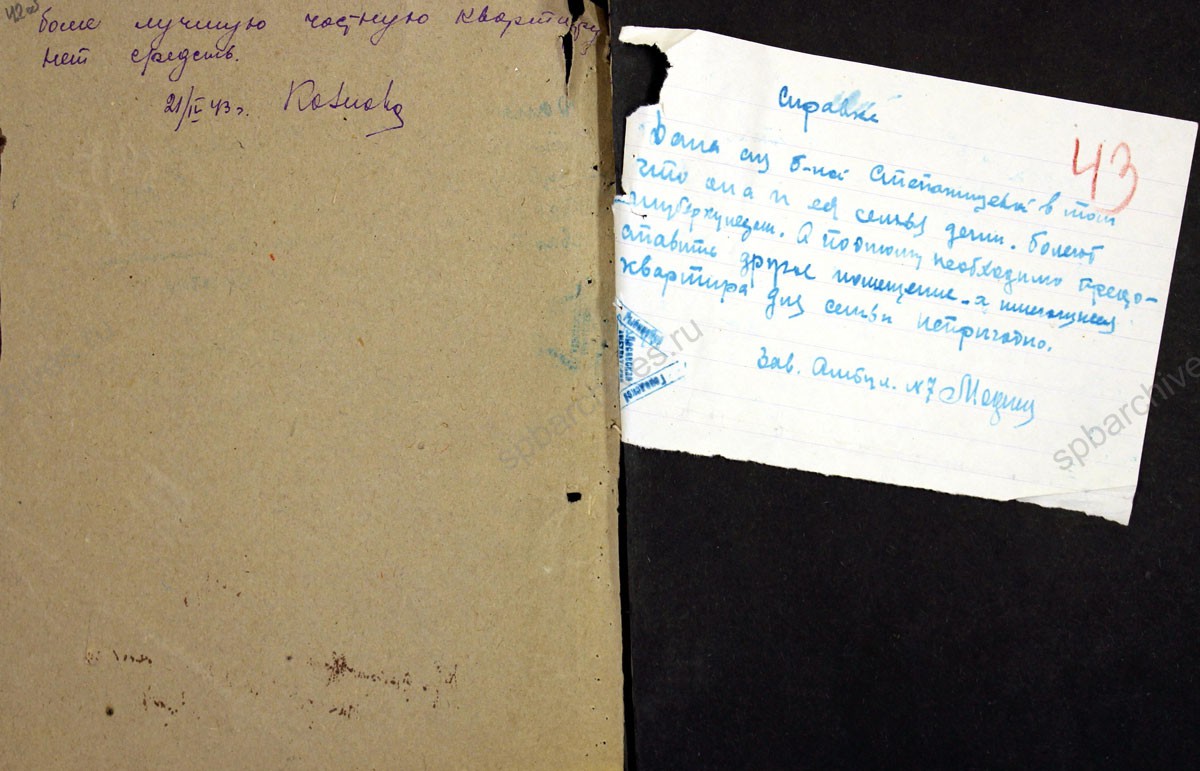 42об
более лучшую частную квартиру
нет средств.
21/IV 43 г.
43
Справка
Дана б-ной Степанищевой в том
что она и её семья дети. болеют
туберкулезом. А поэтому необходимо предо-
ставить другое помещение, а имеющиеся
квартира для семьи непригодно.
Зав. Амбул. №7
spbarchives.ru
spbarchive